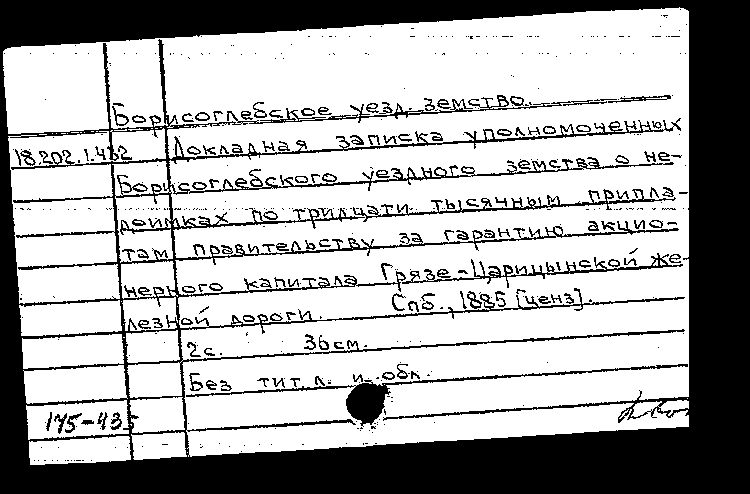 Борисоглебское уезд. земство.
18.202.1.432 Докладная записка уполномоченных
Борисоглебского уездного земства о не-
доимках по тридцати тысячным припла-
там правительству за гарантию акцио-
нерного капитала Грязе-Царицынской же-
лезной дороги. Спб., 1885 [ценз].
2с. 36см.
Без тит.л. и обл.
175-435